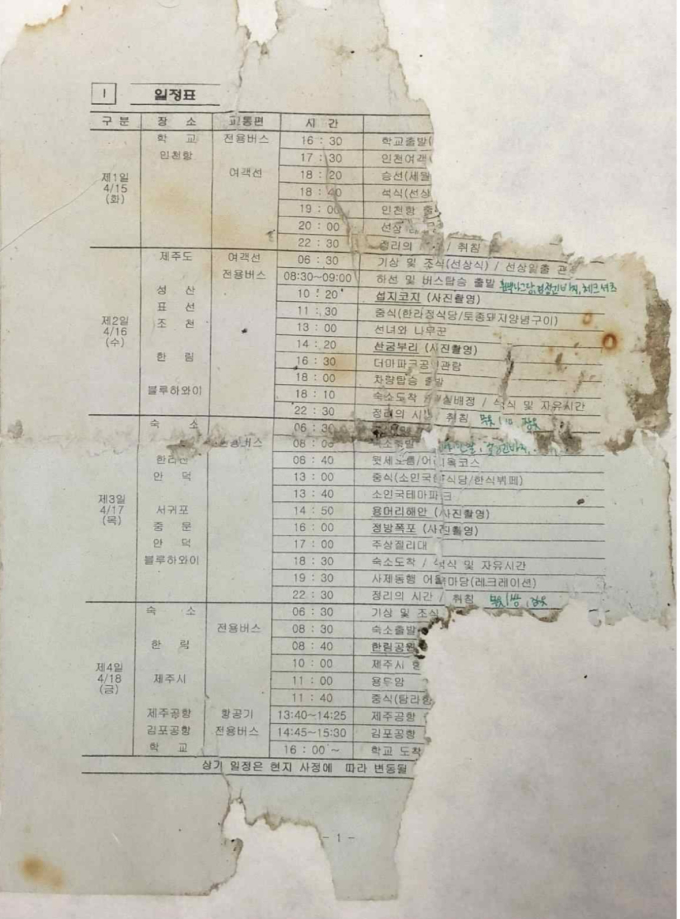 I 일정표
구분 장소 교통편 시간
제1일 4/15 (화)
학교 전용버스 16:30 학교출발(
인천항 17:30 인천여객
여객선 18:20 승선(세월
18:40 석식(선상
19:00 인천항 출
20:00 선상
22:30 정리의 / 취침
제2일 4/16 (수)
제주도 여객선 06:30 기상 및 조식(선상식) / 선상일출 관
전용버스 08:30~09:00 하선 및 버스탑승 출발
성산 10:20 섭지코지 (사진촬영)
표선 11:30 중식(한라정식당/토종돼지양념구이)
조천 13:00 선녀와 나무꾼
14:20 산굼부리 (사진촬영)
한림 16:30 더마파크공 관람
18:00 차량탑승 출발
블루하와이 18:10 숙소도착 / 실배정 / 석식 및 자유시간
22:30 정리의 시간 / 취침
제3일 4/17 (목)
숙소 06:30
전용버스 08:00 숙소출발
한라산 08:40 윗세오름/어리목코스
안덕 13:00 중식(소인국 식당/한식뷔페)
13:40 소인국테마파크
서귀포 14:50 용머리해안 (사진촬영)
중문 16:00 정방폭포 (사진촬영)
안덕 17:00 주상절리대
블루하와이 18:30 숙소도착 / 석식 및 자유시간
19:30 사제동행 어울마당(레크레이션)
22:30 정리의 시간 / 취침
제4일 4/18 (금)
숙소 06:30 기상 및 조식
전용버스 08:30 숙소출발
한림 08:40 한림공원
10:00 제주시
제주시 11:00 용두암
11:40 중식(탐라
제주공항 항공기 13:40~14:25 제주공항
김포공항 전용버스 14:45~15:30 김포공항
학교 16:00~ 학교 도착
상기 일정은 현지 사정에 따라 변동될
- 1 -